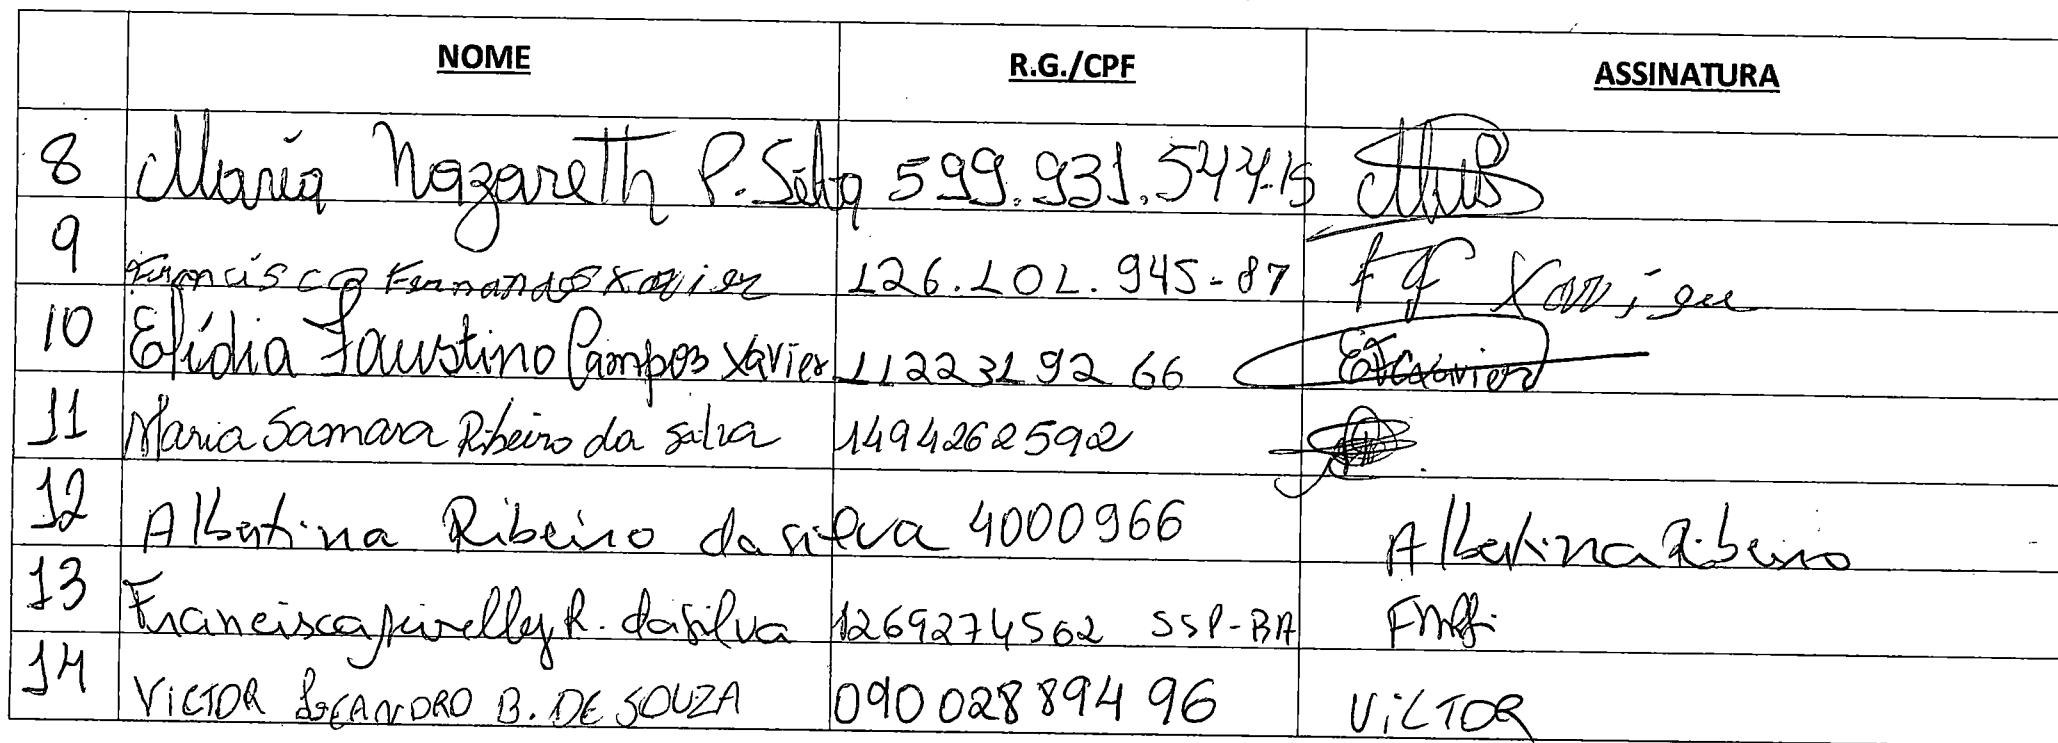 NOME R.G./CPF ASSINATURA
8 Maria Nazareth P. Silva 599.931.544-15
9 Francisco Fernandes Xavier 126.101.945-87 FF Xavier
10 Elídia Faustino Campos Xavier 1122319266 EFCXavier
11 Maria Samara Ribeiro da Silva 1494262592
12 Albertina Ribeiro da silva 4000966 Albertina Ribeiro
13 Francisca R. da silva 1269274562 SSP-BA
14 VICTOR LEANDRO B. DE SOUZA 090 028 894 96 VICTOR